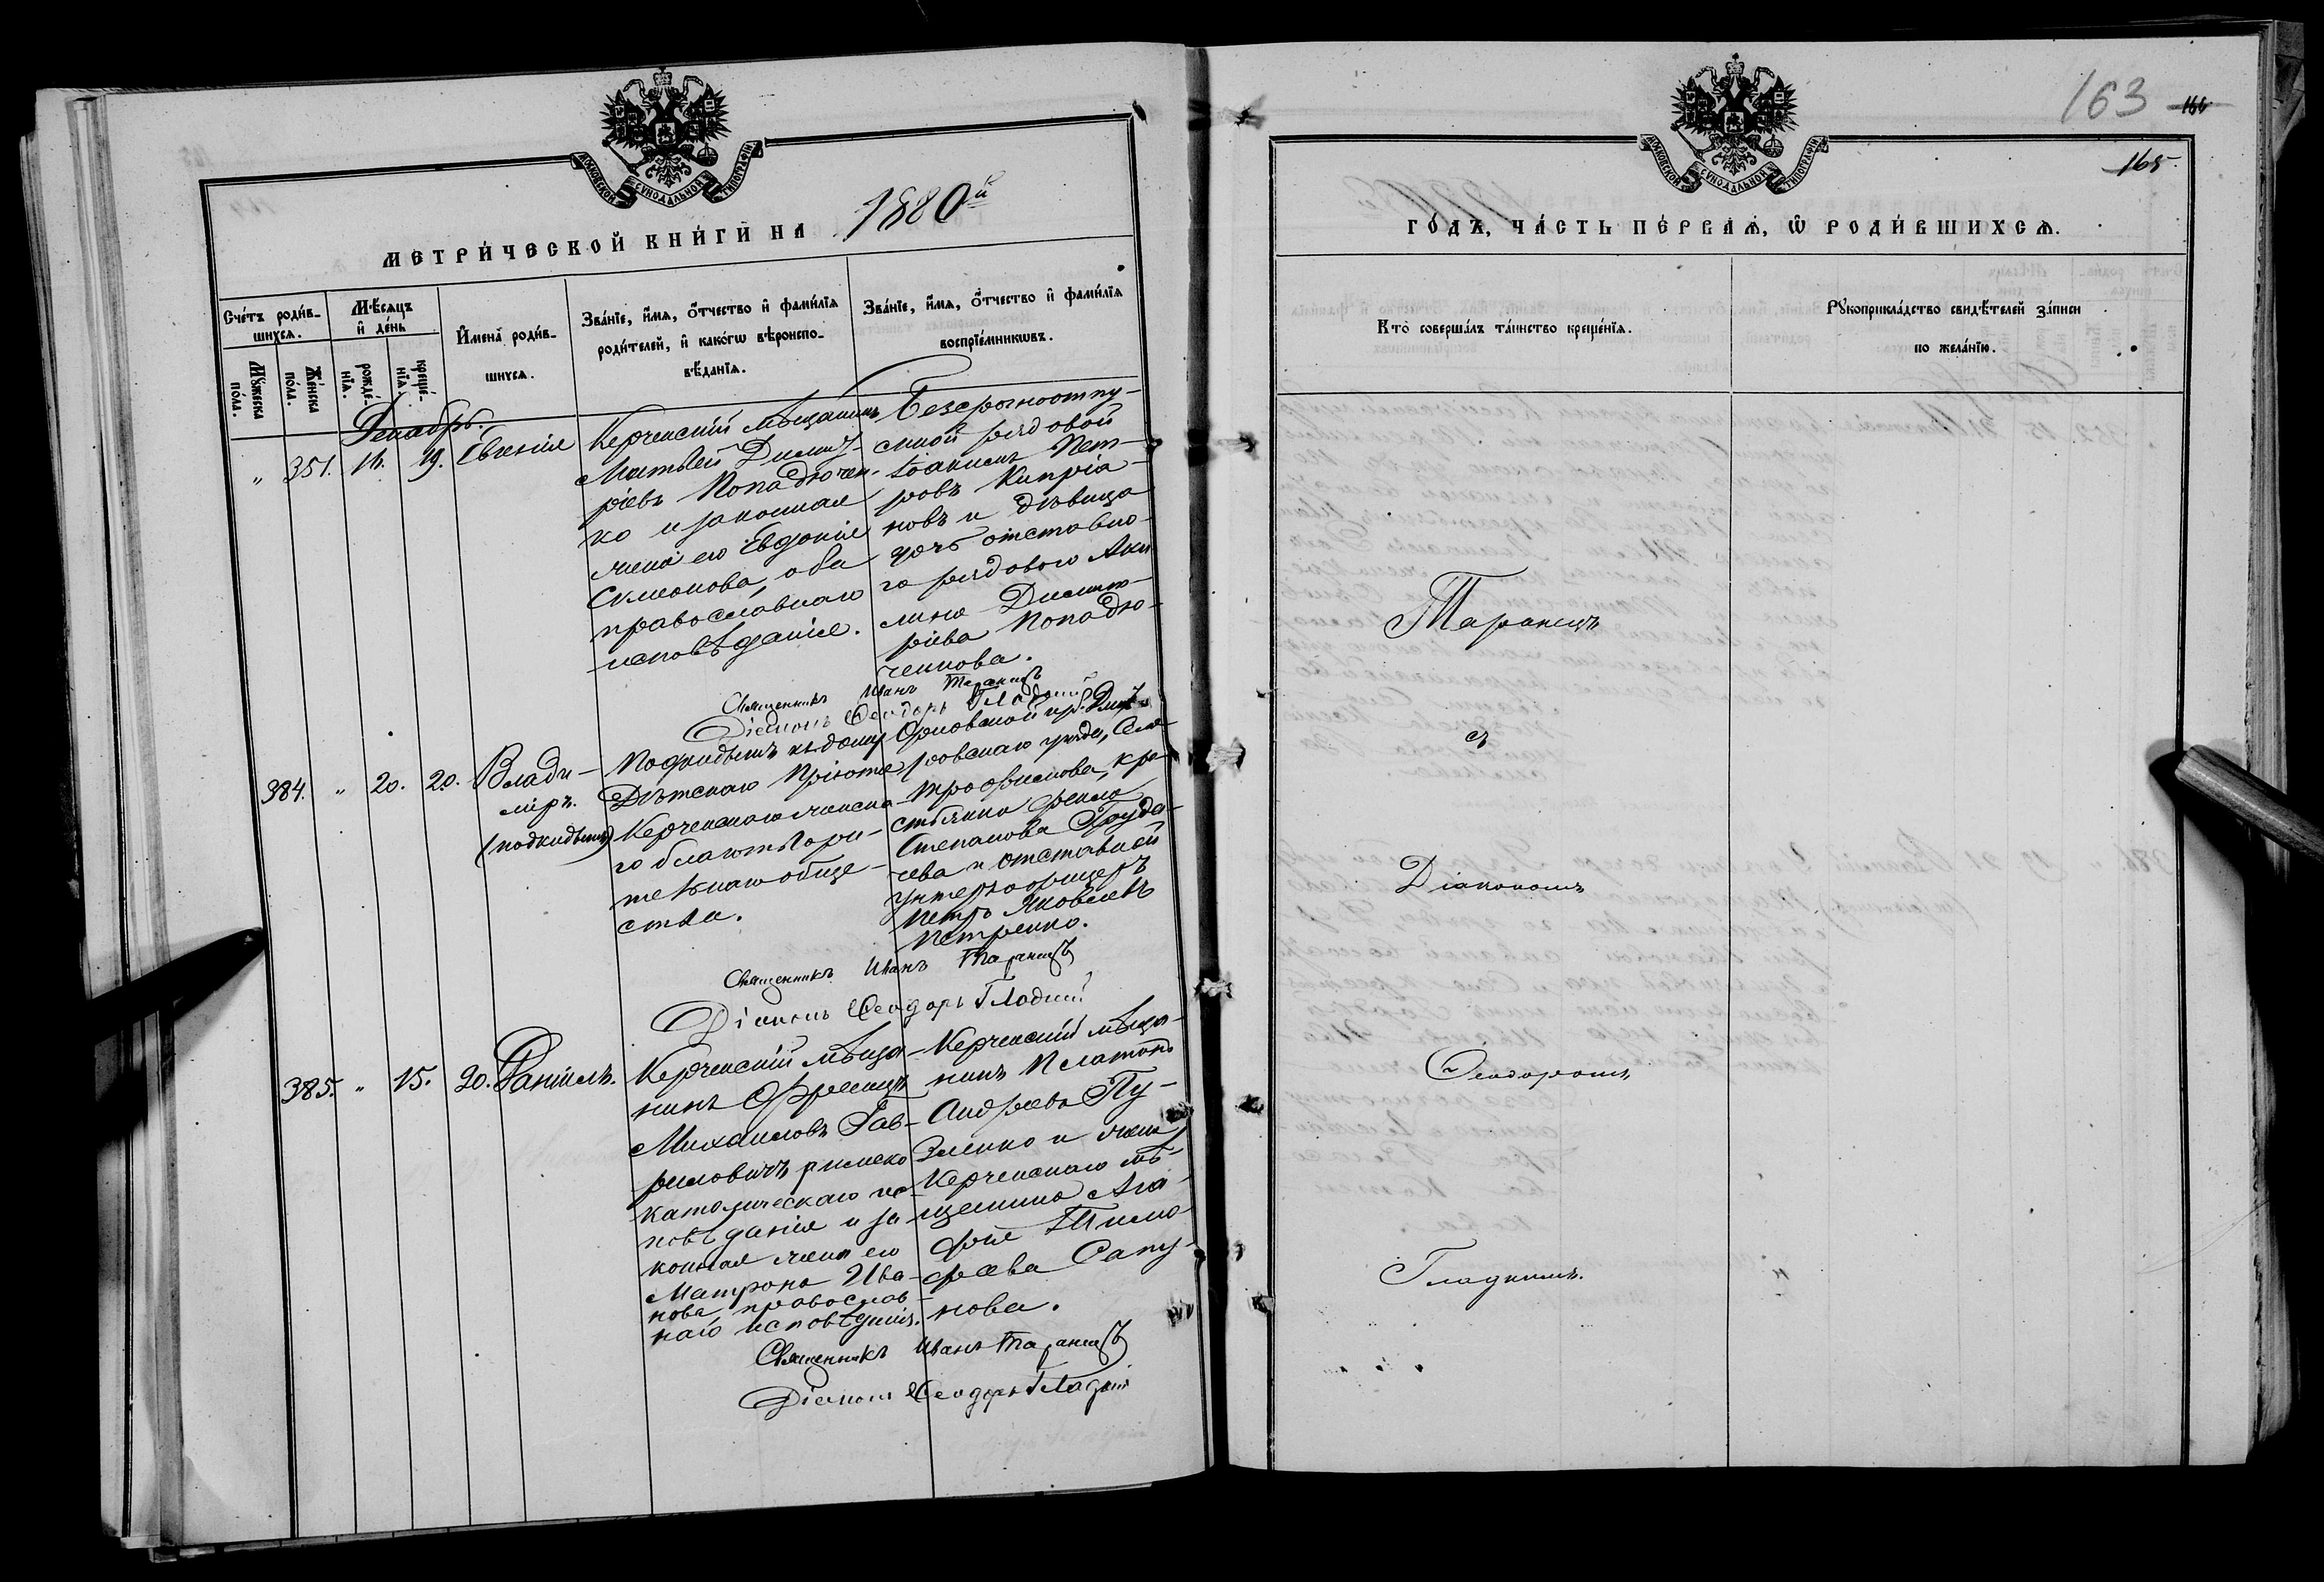 МОСКОВСКОЙ СѴНОДАЛЬНОЙ ТИПОГРАФІИ
МЕТРИ́ЧЕСКОЙ КНИ́ГИ НА 1880й
Сче́тъ роди́в-
шихсѧ.
Мꙋ́жеска
по́ла.
Же́нска
по́ла.
Мѣ́сѧцъ
и҆ де́нь
рожде́-
нїѧ.
креще́-
нїѧ.
И҆мена̀ роди́в-
шихсѧ.
Зва́нїе, и҆́мѧ, ѻ҆́тчество и҆ фамѝлїѧ
роди́телей, и҆ како́гѡ вѣроиспо-
вѣ́данїѧ.
Зва́нїе, и҆́мѧ, ѻ҆́тчество и҆ фамѝлїѧ
воспрїе́мникѡвъ.
Декабрь.
„ 351. 16. 19. Евгенія
Керченскій мѣщанинъ
Матвѣй Димит-
ріевъ Попадючен-
ко и законная
жена его Евдокія
Симеонова, оба
православнаго
исповѣданія.
Безсрочноотпу-
скной рядовой
Іоаннъ Пет-
ровъ Кипріа-
новъ и дѣвица
дочь отставно-
го рядового Аки
лина Димит-
ріева Попадю-
ченкова.
Священникъ Иванъ Таранецъ
Діаконъ Ѳеодоръ Гладкій
384. „ 20. 20. Влади-
міръ.
(подкидышъ)
Подкидышъ къ дому
Дѣтскаго Пріюта
Керченскаго женска-
го благотвори-
тельнаго обще-
ства.
Орловской гу. Дмит-
ровскаго уѣзда, Села
Трофимова, кре-
стьянка Фекла
Степанова Груде-
чева и отставной
унтеръ-офицеръ
Петръ Яковлевъ
Петренко.
Священникъ Иванъ Таранецъ
Діаконъ Ѳеодоръ Гладкій
385. „ 15. 20. Даніилъ.
Керченскій мѣща-
нинъ Францъ
Михаиловъ Гав-
риловичъ римско
католическаго ис-
повѣданія и за-
конная жена его
Матрона Ива-
нова, православ-
наго исповѣданія.
Керченскій мѣща-
нинъ Платонъ
Андреевъ Пу-
зенко и жена
Керченскаго мѣ-
щанина Ага-
фія Тимо-
феева Сапу-
нова.
Священникъ Иванъ Таранецъ
Діаконъ Ѳеодоръ Гладкій
163 166
МОСКОВСКОЙ СѴНОДАЛЬНОЙ ТИПОГРАФІИ
165
ГО́ДЪ, ЧА́СТЬ ПЕ́РВАѦ, Ѡ҆ РОДИ́ВШИХСѦ.
Кто̀ соверша́лъ та́инство креще́нїѧ.
Рꙋкоприкла́дство свидѣ́телей за́писи
по жела́нїю.
Таранецъ
съ
Діакономъ
Ѳеодоромъ
Гладкимъ.